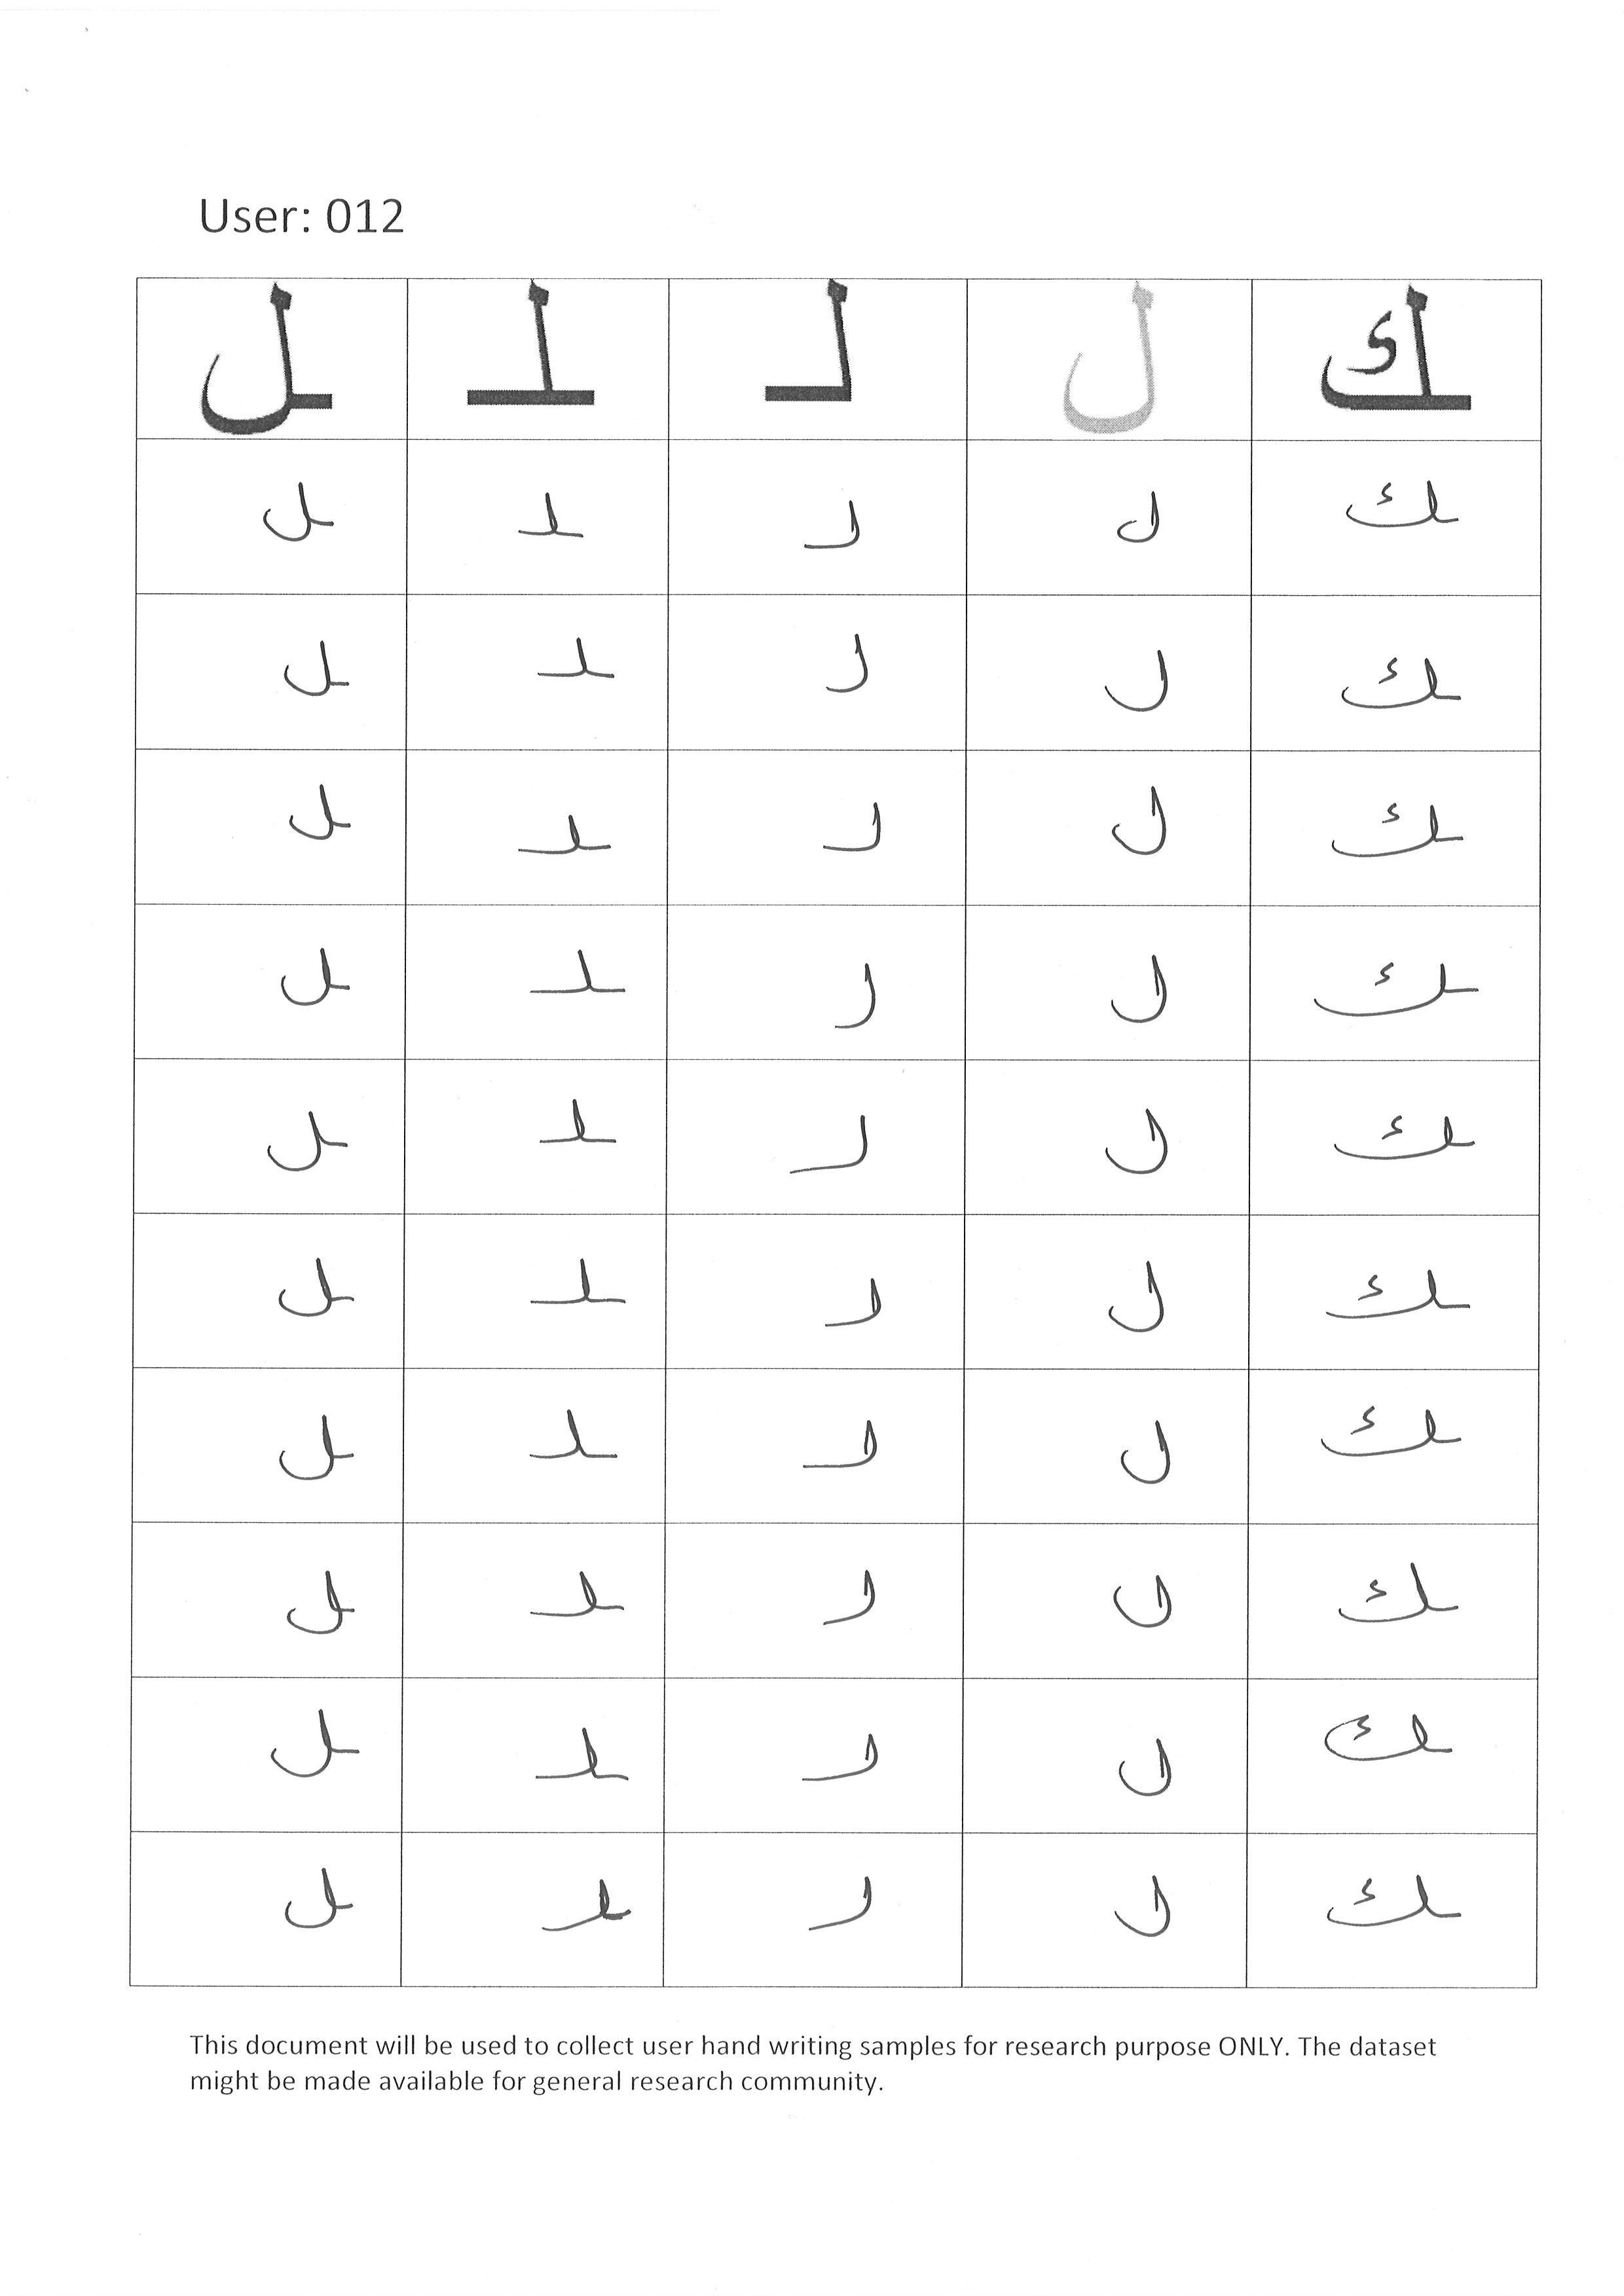 User: 012
ـك ل لـ ـلـ ـل
ـك ل لـ ـلـ ـل
ـك ل لـ ـلـ ـل
ـك ل لـ ـلـ ـل
ـك ل لـ ـلـ ـل
ـك ل لـ ـلـ ـل
ـك ل لـ ـلـ ـل
ـك ل لـ ـلـ ـل
ـك ل لـ ـلـ ـل
ـك ل لـ ـلـ ـل
ـك ل لـ ـلـ ـل
This document will be used to collect user hand writing samples for research purpose ONLY. The dataset
might be made available for general research community.